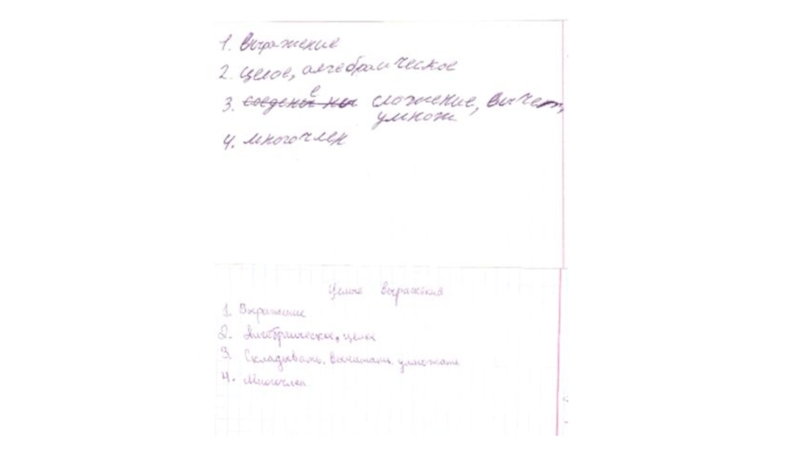 1. Выражение
2. целое, алгебраическое
3. сложение, вычет,
умнож
4. многочлен
Целые выражения
1. Выражение
2. Алгебраическое, целое
3. Складывать, вычитать, умножать
4. Многочлен